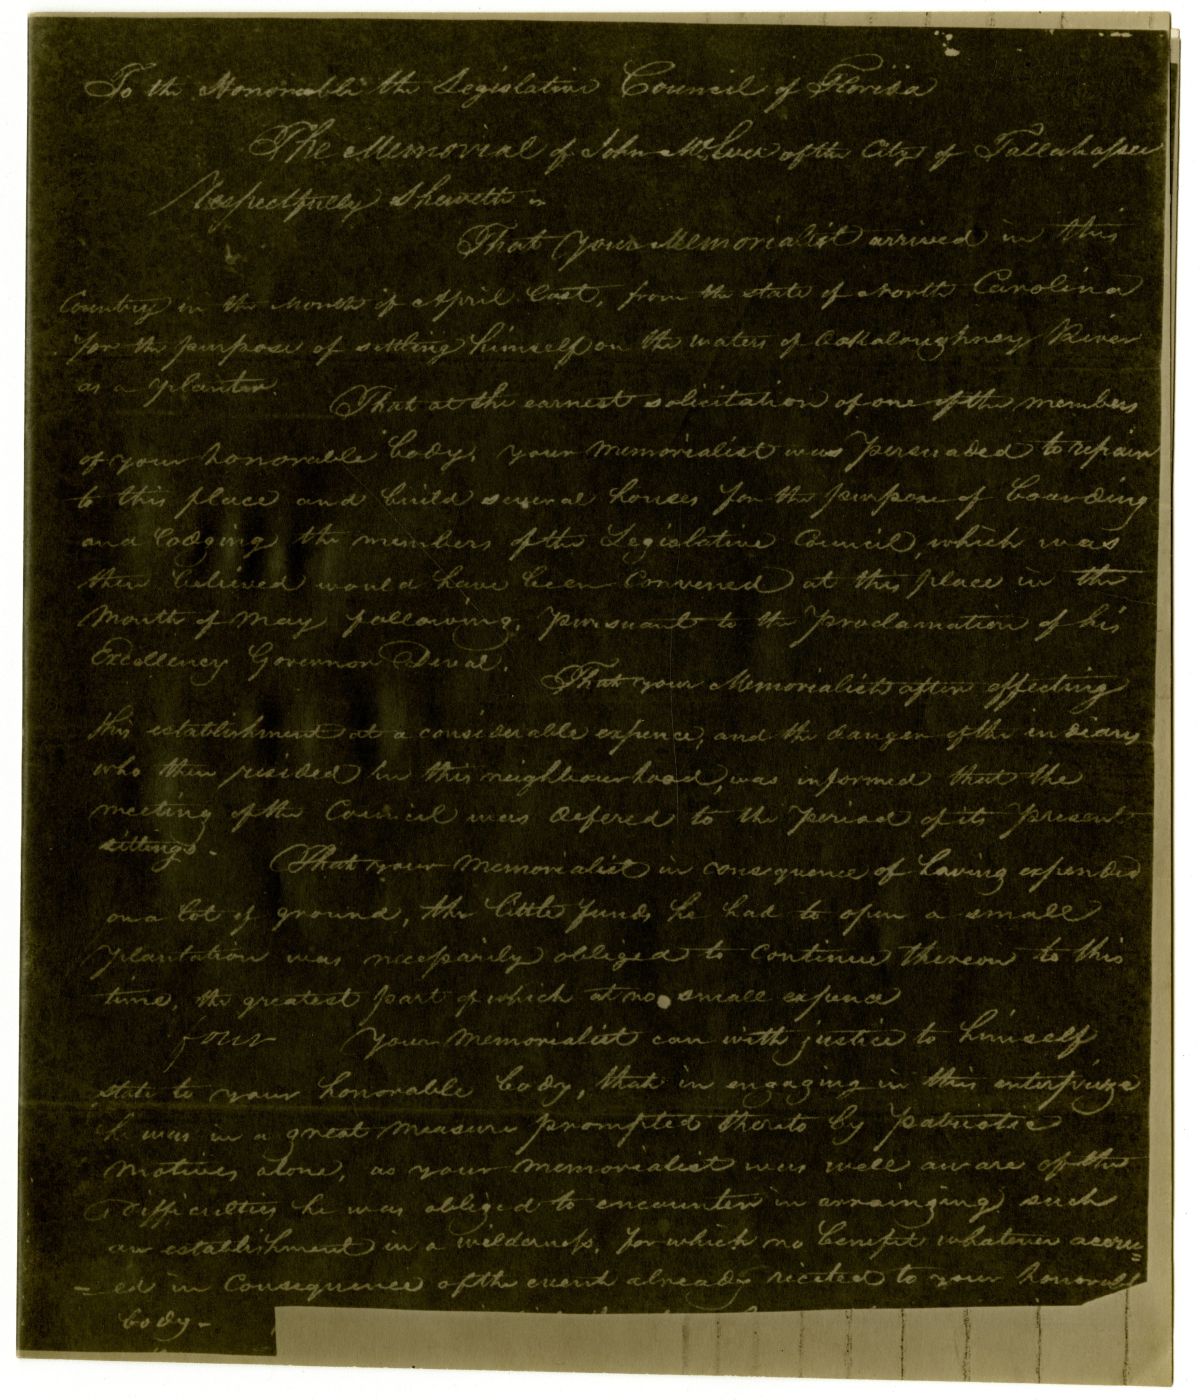 To the Honorable the Legislative Council of Florida
The Memorial of John McIver of the City of Tallahassee
Respectfully Sheweth
That your Memorialist arrived in this
Country in the Month of April last, from the state of North Carolina
for the purpose of settling himself on the waters of Oakaloughney River
as a planter.
That at the earnest solicitation of one of the members
of your honorable body, your Memorialist was persuaded to repair
to this place and build several houses for the purpose of boarding
and lodging the members of the Legislative Council, which was
then believed would have been Convened at this place in the
Month of May following, pursuant to the Proclamation of his
Excellency Governor Duval.
That your Memorialist after effecting
this establishment at a considerable expence, and the danger of the indians
who then resided in this neighbourhood, was informed that the
meeting of the Council was defered to the period of its present
sittings.
That your Memorialist in consequence of having expended
on a lot of ground, the little funds he had to open a small
plantation was necessarily obliged to continue thereon to this
time, the greatest part of which at no small expence
four
Your Memorialist can with justice to himself
state to your honorable body, that in engaging in this enterprize
he was in a great measure prompted thereto by patriotic
motives alone, as your memorialist was well aware of the
difficulties he was obliged to encounter in arrainging such
an establishment in a wilderness, for which no benefit whatever accru=
=ed in Consequence of the event already recited to your honorable
body-